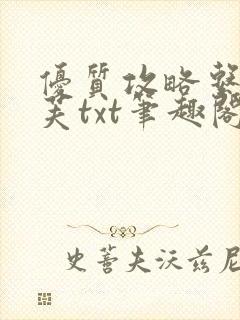 優質攻略
txt筆趣閣
史蒂夫沃兹尼